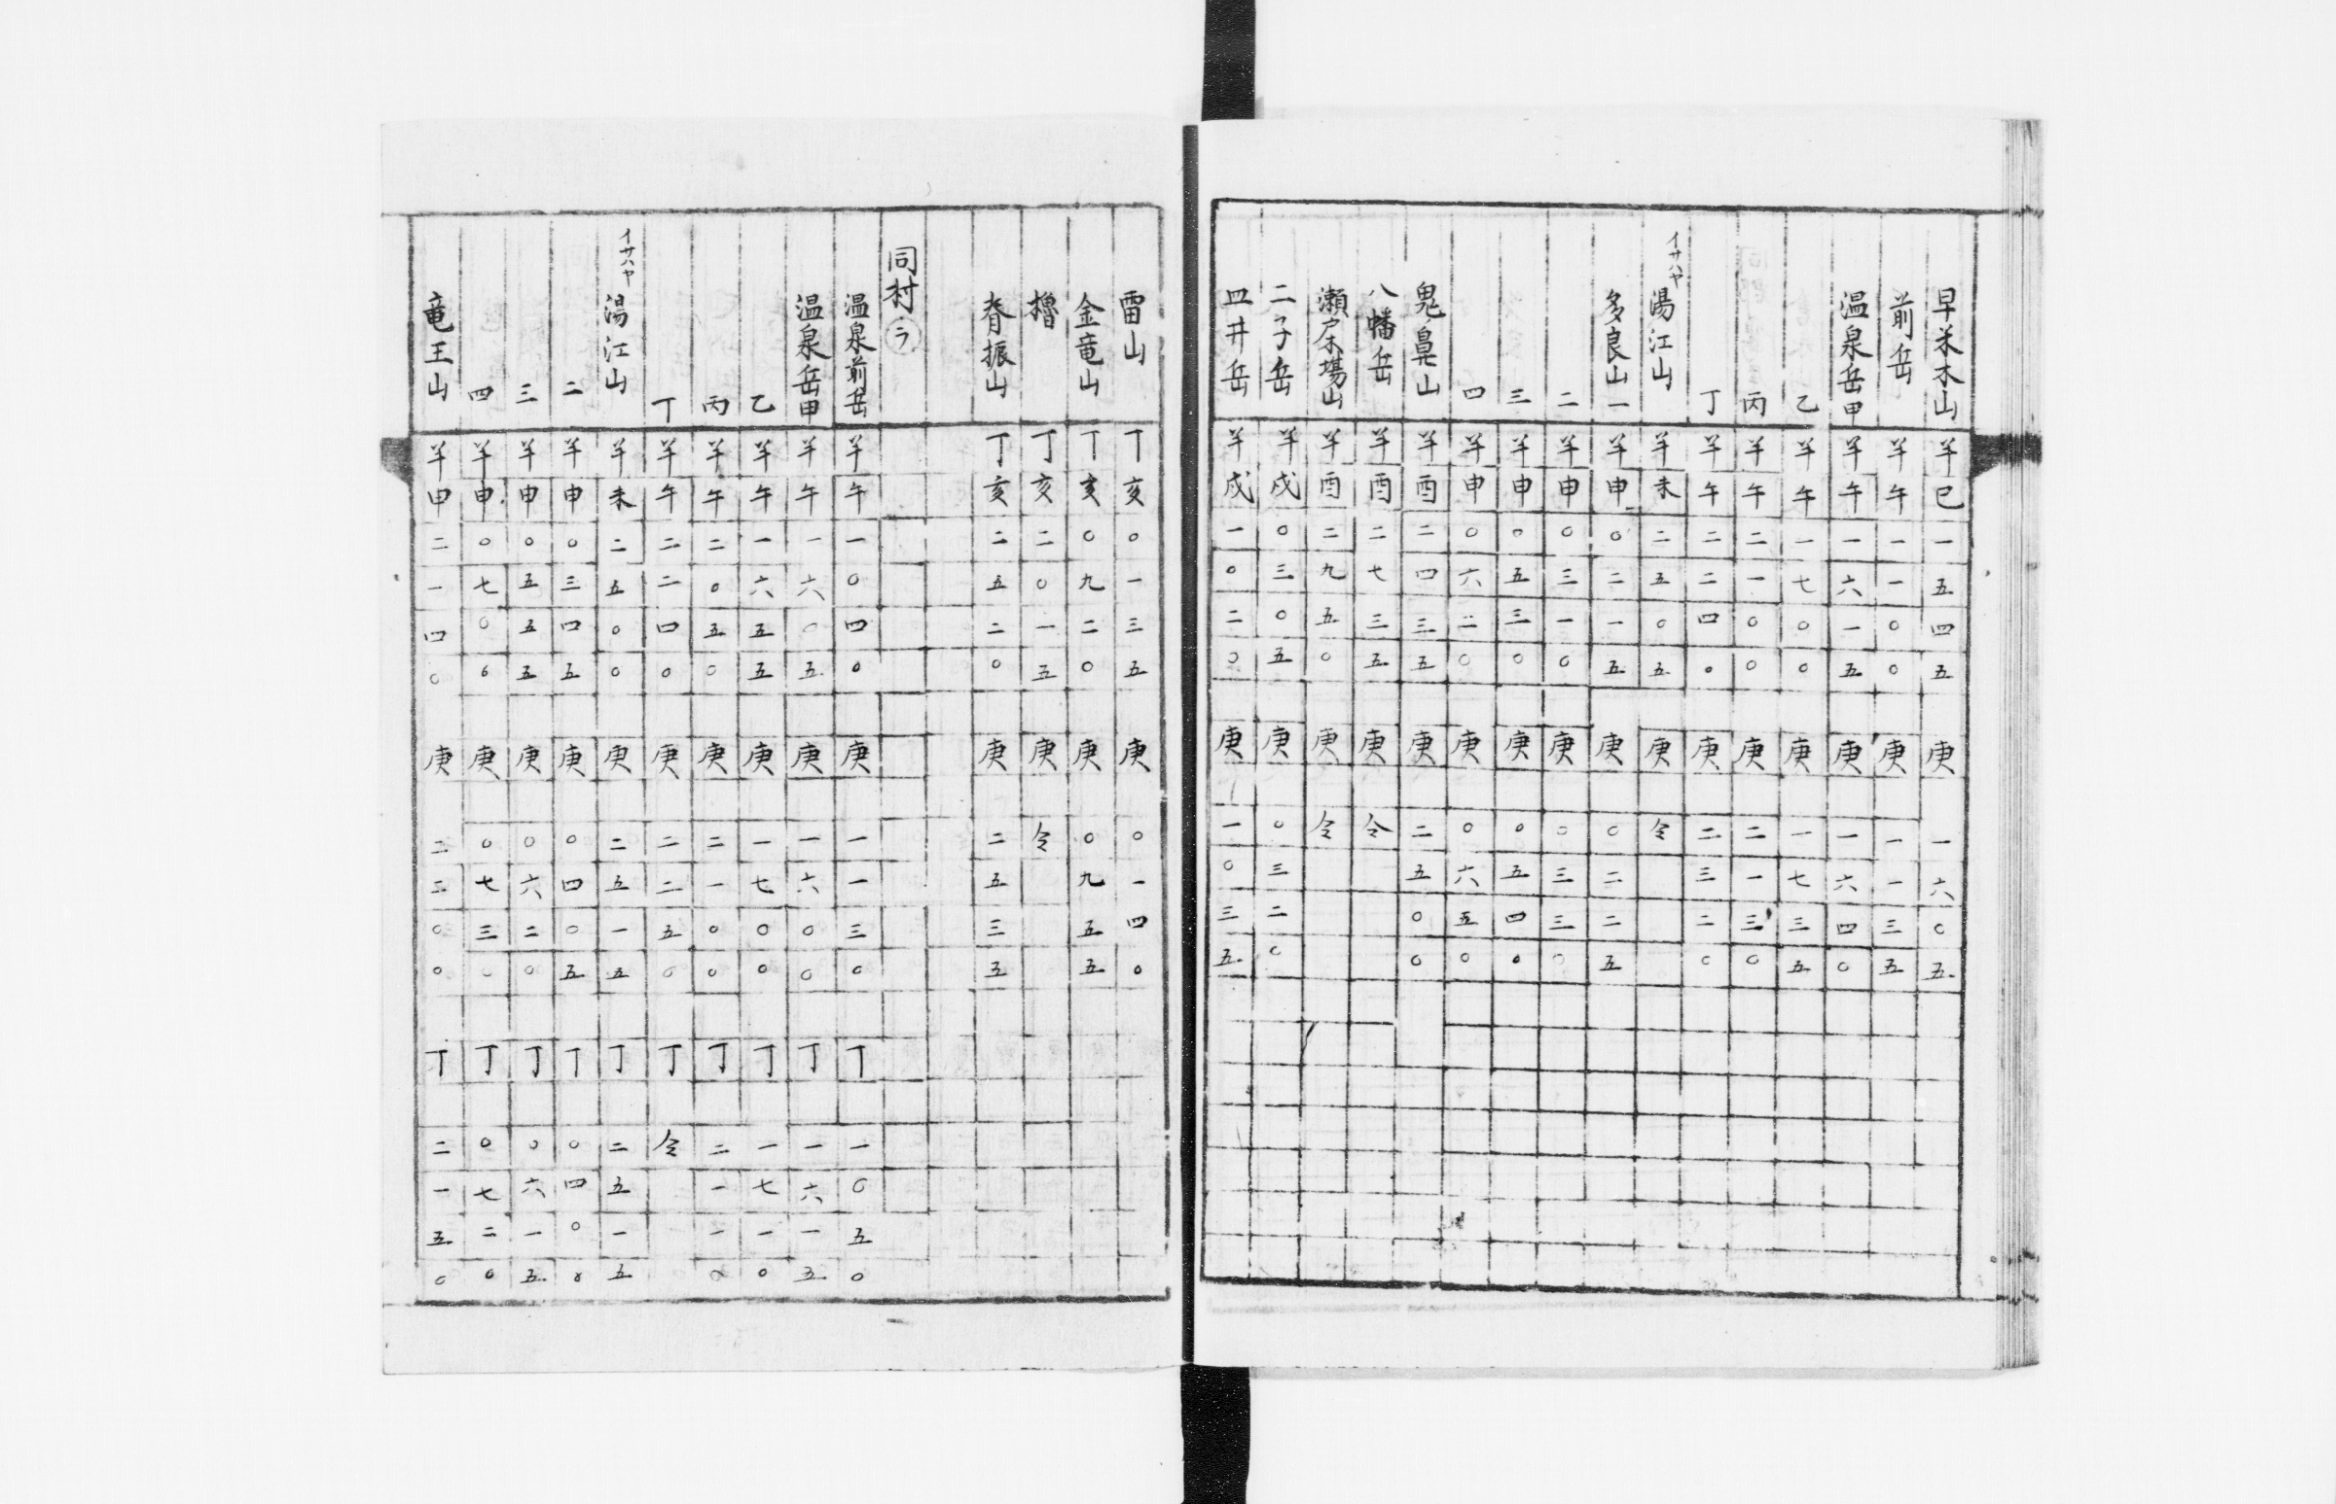 早米木山 羊巳一五四五 庚一六〇五
前岳 羊午一一〇〇 庚一一三五
温泉岳甲 羊午一六一五 庚一六四〇
乙 羊午一七〇〇 庚一七三五
丙 羊午二一〇〇 庚二一三〇
丁 羊午二二四〇 庚二三二〇
イサハヤ 湯江山 羊未二五〇五 庚仝
多良山一 羊申〇二一五 庚〇二二五
二 羊申〇三一〇 庚〇三三〇
三 羊申〇五三〇 庚〇五四〇
四 羊申〇六二〇 庚〇六五〇
鬼鼻山 羊酉二四三五 庚二五〇〇
八幡岳 羊酉二七三五 庚仝
瀬戸木場山 羊酉二九五〇 庚仝
二子岳 羊戌〇三〇五 庚〇三二〇
皿井岳 羊戌一〇二〇 庚一〇三五
雷山 丁亥〇一三五 庚〇一四〇
金竜山 丁亥〇九二〇 庚〇九五五
櫓 丁亥二〇一五 庚仝
脊振山 丁亥二五二〇 庚二五三五
同村ラ
温泉前岳 羊午一〇四〇 庚一一三〇 丁一〇五〇
温泉岳甲 羊午一六〇五 庚一六〇〇 丁一六一五
乙 羊午一六五五 庚一七〇〇 丁一七一〇
丙 羊午二〇五〇 庚二一〇〇 丁二一一〇
丁 羊午二二四〇 庚二二五〇 丁仝
イサハヤ 湯江山 羊未二五〇〇 庚二五一五 丁二五一五
二 羊申〇三四五 庚〇四〇五 丁〇四〇〇
三 羊申〇五五五 庚〇六二〇 丁〇六一五
四 羊申〇七〇〇 庚〇七三〇 丁〇七二〇
竜王山 羊申二一四〇 庚二二〇〇 丁二一五〇